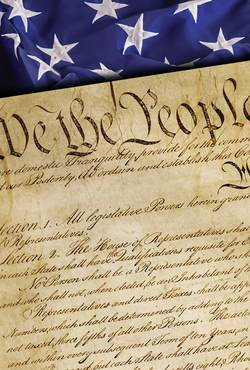 We the People
ure domestic Tranquility, provide for the comm
our Posterity, do ordain and establish this
W
ection. 1. All legislative Powers herein gran
Representatives.
Section. 2. The House of Representatives sha
each State shall have Qualifications requisite for
No Person shall be a Representative who
and who shall not, when elected, be an Inhabitant of
Representatives and direct Taxes shall be ap
Numbers, which shall be determined by adding to the
not taxed, three fifths of all other Persons. The ac
and within every subsequent Term of ten Years, in
but each State shall have at Leas